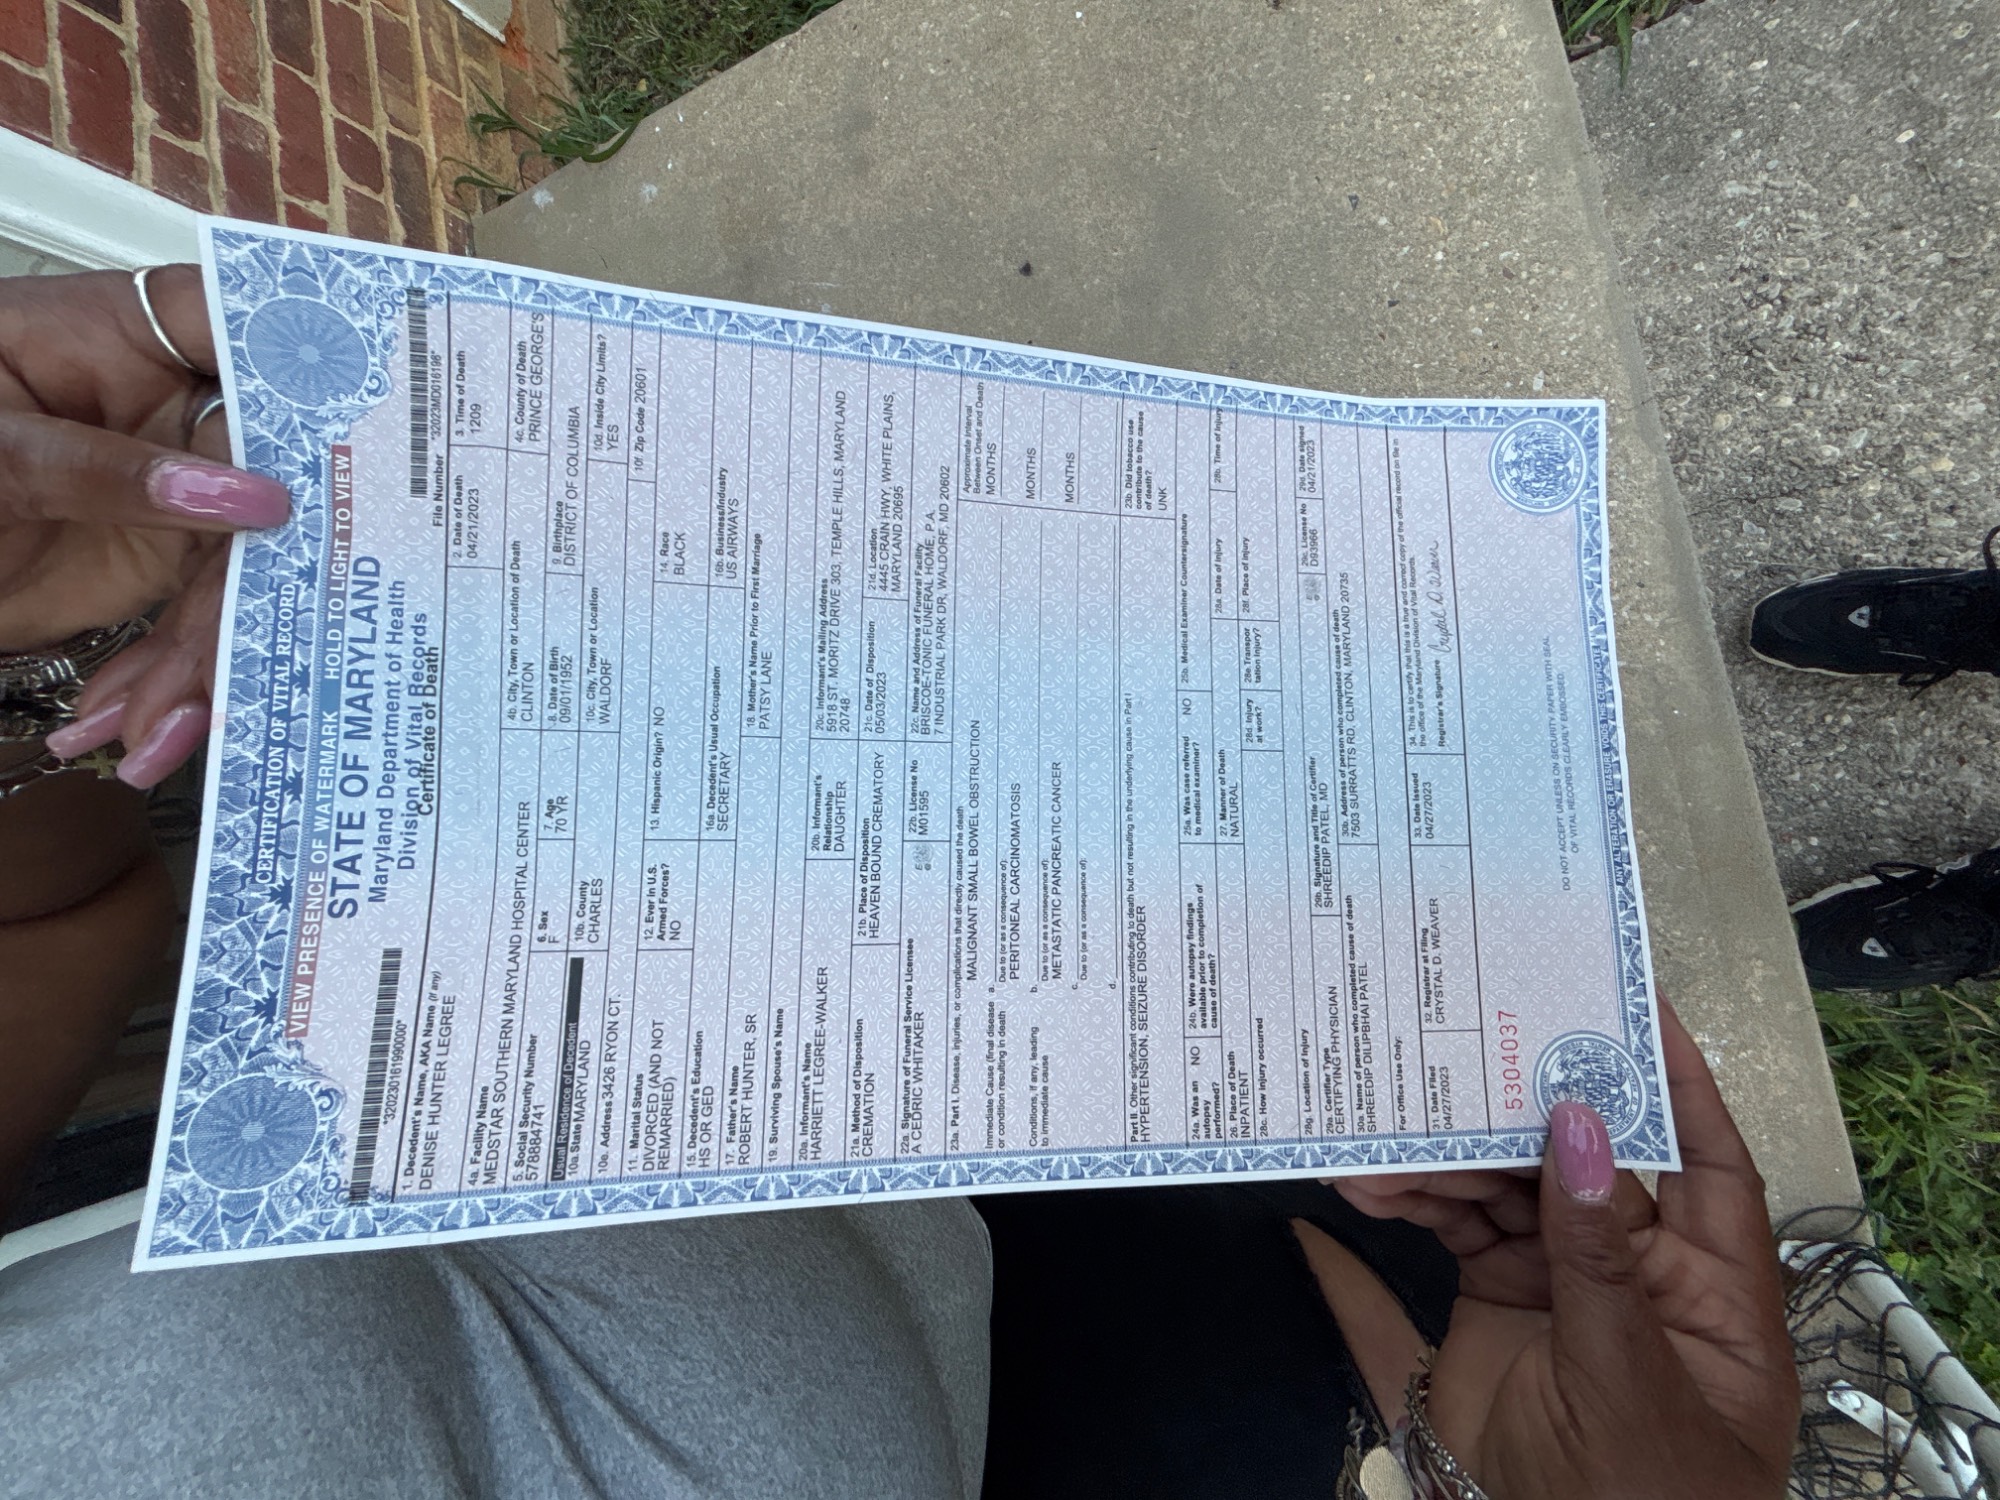 CERTIFICATION OF VITAL RECORD
VIEW PRESENCE OF WATERMARK HOLD TO LIGHT TO VIEW
STATE OF MARYLAND
Maryland Department of Health
Division of Vital Records
Certificate of Death
*320230161990000*
File Number *32023MD016196*
1. Decedent's Name, AKA Name (if any)
DENISE HUNTER LEGREE
2. Date of Death
04/21/2023
3. Time of Death
1209
4a. Facility Name
MEDSTAR SOUTHERN MARYLAND HOSPITAL CENTER
4b. City, Town or Location of Death
CLINTON
4c. County of Death
PRINCE GEORGE'S
5. Social Security Number
578884741
6. Sex
F
7. Age
70 YR
8. Date of Birth
09/01/1952
9. Birthplace
DISTRICT OF COLUMBIA
Usual Residence of Decedent
10a. State MARYLAND
10b. County
CHARLES
10c. City, Town or Location
WALDORF
10d. Inside City Limits?
YES
10e. Address 3426 RYON CT.
10f. Zip Code 20601
11. Marital Status
DIVORCED (AND NOT
REMARRIED)
12. Ever in U.S.
Armed Forces?
NO
13. Hispanic Origin? NO
14. Race
BLACK
15. Decedent's Education
HS OR GED
16a. Decedent's Usual Occupation
SECRETARY
16b. Business/Industry
US AIRWAYS
17. Father's Name
ROBERT HUNTER, SR
18. Mother's Name Prior to First Marriage
PATSY LANE
19. Surviving Spouse's Name
20a. Informant's Name
HARRIETT LEGREE-WALKER
20b. Informant's
Relationship
DAUGHTER
20c. Informant's Mailing Address
5918 ST. MORITZ DRIVE 303, TEMPLE HILLS, MARYLAND
20748
21a. Method of Disposition
CREMATION
21b. Place of Disposition
HEAVEN BOUND CREMATORY
21c. Date of Disposition
05/03/2023
21d. Location
4445 CRAIN HWY, WHITE PLAINS,
MARYLAND 20695
22a. Signature of Funeral Service Licensee
A CEDRIC WHITAKER
22b. License No
M01595
22c. Name and Address of Funeral Facility
BRISCOE-TONIC FUNERAL HOME, P.A.
7 INDUSTRIAL PARK DR, WALDORF, MD 20602
23a. Part I. Disease, injuries, or complications that directly caused the death
Approximate Interval
Between Onset and Death
Immediate Cause (final disease
or condition resulting in death
a. MALIGNANT SMALL BOWEL OBSTRUCTION
MONTHS
Due to (or as a consequence of):
Conditions, if any, leading
to immediate cause
b. PERITONEAL CARCINOMATOSIS
MONTHS
Due to (or as a consequence of):
c. METASTATIC PANCREATIC CANCER
MONTHS
Due to (or as a consequence of):
d.
Part II. Other significant conditions contributing to death but not resulting in the underlying cause in Part I
HYPERTENSION, SEIZURE DISORDER
23b. Did tobacco use
contribute to the cause
of death?
UNK
24a. Was an
autopsy
performed? NO
24b. Were autopsy findings
available prior to completion of
cause of death?
25a. Was case referred
to medical examiner? NO
25b. Medical Examiner Countersignature
26. Place of Death
INPATIENT
27. Manner of Death
NATURAL
28a. Date of Injury
28b. Time of Injury
28c. How injury occurred
28d. Injury
at work?
28e. Transpor
tation Injury?
28f. Place of Injury
28g. Location of Injury
29a. Certifier Type
CERTIFYING PHYSICIAN
29b. Signature and Title of Certifier
SHREEDIP PATEL, MD
29c. License No
D93966
29d. Date signed
04/21/2023
30a. Name of person who completed cause of death
SHREEDIP DILIPBHAI PATEL
30b. Address of person who completed cause of death
7503 SURRATTS RD, CLINTON, MARYLAND 20735
For Office Use Only:
31. Date Filed
04/27/2023
32. Registrar at Filing
CRYSTAL D. WEAVER
33. Date Issued
04/27/2023
34. This is to certify that this is a true and correct copy of the official record on file in
the office of the Maryland Division of Vital Records.
Registrar's Signature
5304037
DO NOT ACCEPT UNLESS ON SECURITY PAPER WITH SEAL
OF VITAL RECORDS CLEARLY EMBOSSED.
ANY ALTERATION OR ERASURE VOIDS THIS CERTIFICATE